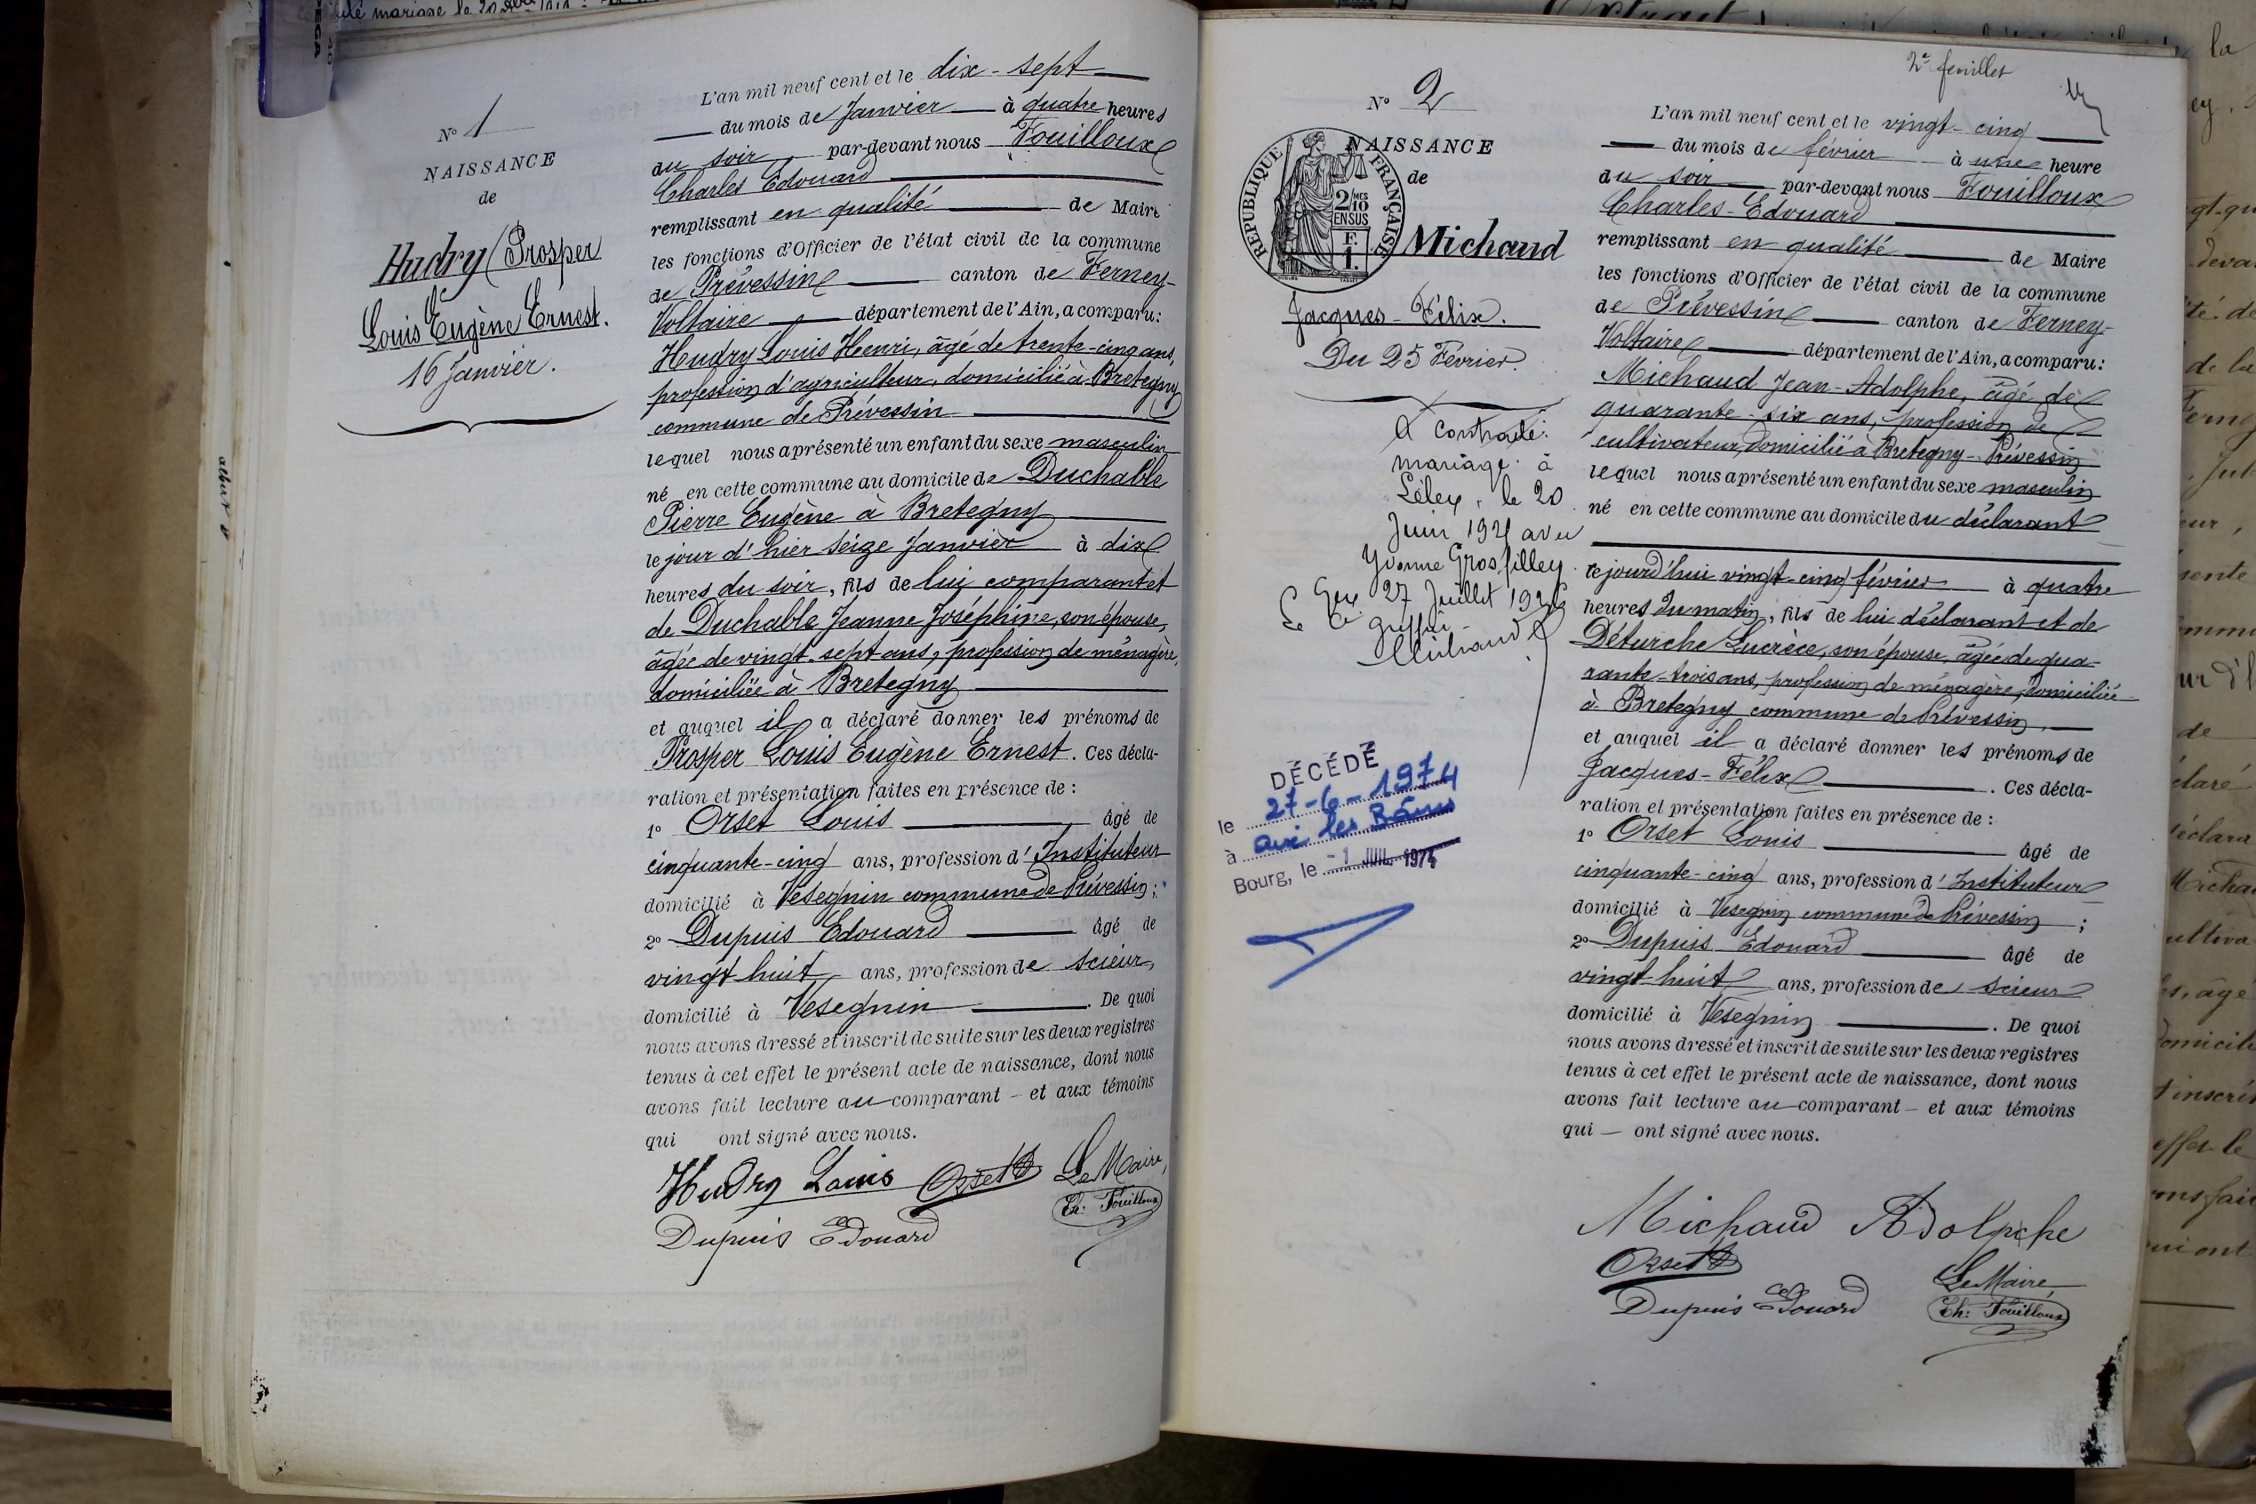 N° 1
NAISSANCE
de
Hudry (Prosper
Louis Eugène Ernest.
16 Janvier.
L'an mil neuf cent et le dix-sept
du mois de Janvier à quatre heures
du soir par-devant nous Fouilloux
Charles Edouard
remplissant en qualité de Maire
les fonctions d'Officier de l'état civil de la commune
de Prévessin canton de Ferney-
Voltaire département de l'Ain, a comparu:
Hudry Louis Henri, âgé de trente-cinq ans,
profession d'agriculteur, domicilié à Bretegny
commune de Prévessin
lequel nous a présenté un enfant du sexe masculin
né en cette commune au domicile de Duchable
Pierre Eugène à Bretegny
le jour d'hier seize Janvier à dix
heures du soir, fils de lui comparant et
de Duchable Jeanne Joséphine, son épouse,
âgée de vingt-sept ans, profession de ménagère,
domiciliée à Bretegny
et auquel il a déclaré donner les prénoms de
Prosper Louis Eugène Ernest. Ces décla-
ration et présentation faites en présence de :
1° Orset Louis âgé de
cinquante-cinq ans, profession d'Instituteur
domicilié à Vésegnin commune de Prévessin;
2° Dupuis Edouard âgé de
vingt huit ans, profession de scieur,
domicilié à Vésegnin. De quoi
nous avons dressé et inscrit de suite sur les deux registres
tenus à cet effet le présent acte de naissance, dont nous
avons fait lecture au comparant – et aux témoins
qui ont signé avec nous.
Hudry Louis Orset Le Maire,
Ch: Fouilloux
Dupuis Edouard
2e feuillet
N° 2
NAISSANCE
de
REPUBLIQUE FRANÇAISE
2/10 MES
EN SUS
F.
1.
Michaud
Jacques-Félix.
Du 25 Février.
A contracté
mariage à
Lélex, le 20
Juin 1921 avec
Yvonne Grosfilley
Gex 27 Juillet 192
Le Greffier
DÉCÉDÉ
le 27-6-1974
à aix les Bains
Bourg, le -1 JUIL 1974
L'an mil neuf cent et le vingt-cinq
du mois de février à une heure
du soir par-devant nous Fouilloux
Charles-Edouard
remplissant en qualité de Maire
les fonctions d'Officier de l'état civil de la commune
de Prévessin canton de Ferney-
Voltaire département de l'Ain, a comparu:
Michaud Jean-Adolphe, âgé de
quarante-six ans, profession de
cultivateur, domicilié à Bretegny-Prévessin
lequel nous a présenté un enfant du sexe masculin
né en cette commune au domicile du déclarant
cejourd'hui vingt-cinq février à quatre
heures du matin, fils de lui déclarant et de
Déturche Lucrèce, son épouse, âgée de qua-
rante-trois ans, profession de ménagère, domiciliée
à Bretegny commune de Prévessin,
et auquel il a déclaré donner les prénoms de
Jacques-Félix. Ces décla-
ration et présentation faites en présence de :
1° Orset Louis âgé de
cinquante-cinq ans, profession d'Instituteur
domicilié à Vésegnin commune de Prévessin ;
2° Dupuis Edouard âgé de
vingt-huit ans, profession de scieur
domicilié à Vésegnin. De quoi
nous avons dressé et inscrit de suite sur les deux registres
tenus à cet effet le présent acte de naissance, dont nous
avons fait lecture au comparant – et aux témoins
qui — ont signé avec nous.
Michaud Adolphe
Orset
Le Maire,
Dupuis Edouard
Ch: Fouilloux